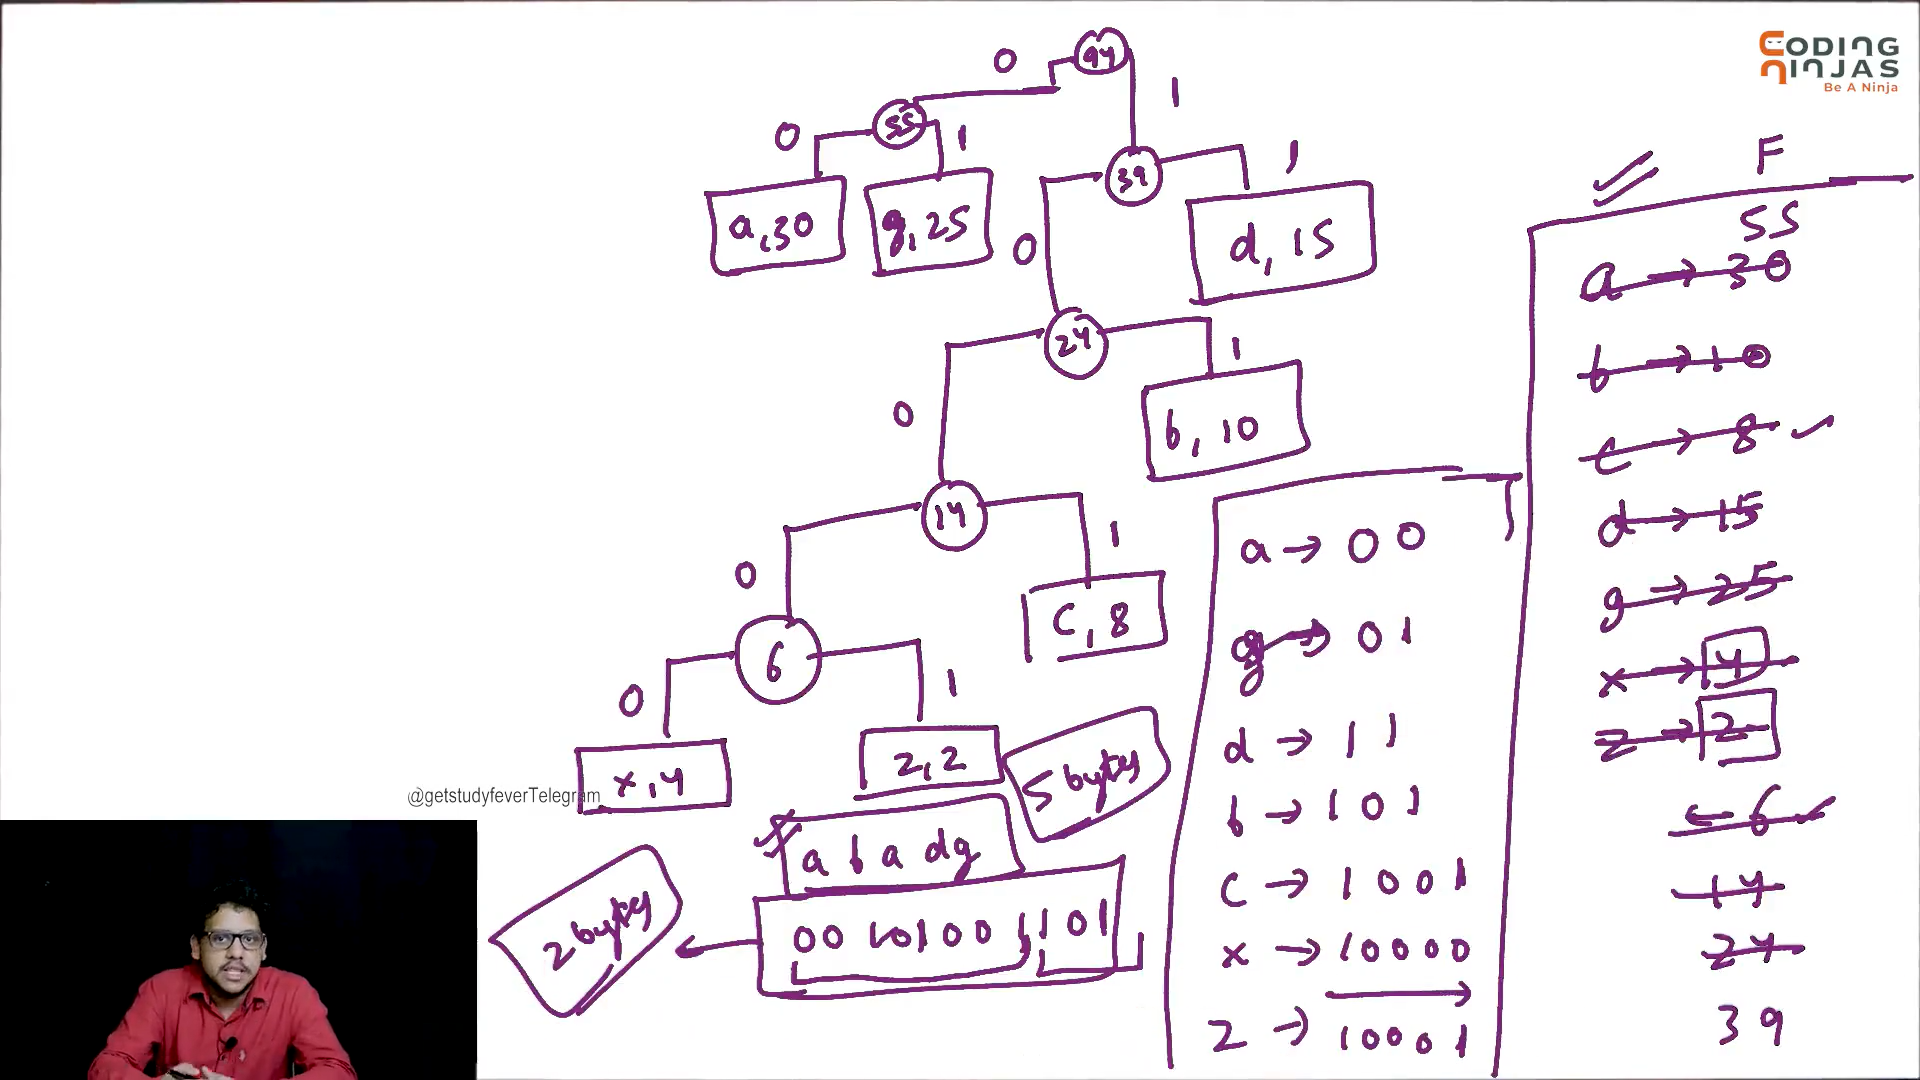 CODING
NINJAS
Be A Ninja
94
0
1
55
0
1
39
1
0
a,30
g,25
d,15
24
0
1
b,10
14
0
1
c,8
6
0
1
x,4
z,2
@getstudyfeverTelegram
5 bytes
a b a d g
00 10100 1101
2 bytes
a → 00
g → 01
d → 11
b → 101
c → 1001
x → 10000
z → 10001
F
55
a → 30
b → 10
c → 8 ✓
d → 15
g → 25
x → 4
z → 2
← 6 ✓
14
24
39